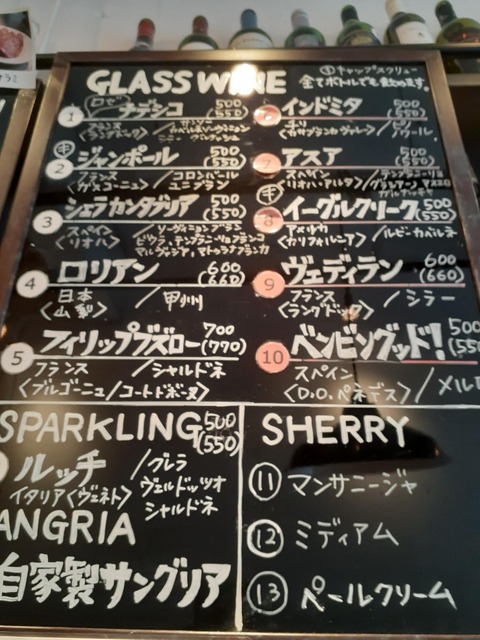 GLASS WINE
キャップスクリュー
全てボトルでも飲めます。
1 ロゼ チデシコ 500 (550)
フランス
2 キ ジャンポール 500 (550)
フランス / コロンバール
〈ガスコーニュ〉 ユニブラン
3 シエラカンタブリア 500 (550)
スペイン / ソーヴィニョンブラン
〈リオハ〉 ビウラ、テンプラニーリョブランコ
マルヴァジア、マトゥラナブランカ
4 ロリアン 600 (660)
日本 / 甲州
〈山梨〉
5 フィリップブズロー 700 (770)
フランス / シャルドネ
〈ブルゴーニュ/コートドボーヌ〉
インドミタ 500 (550)
チリ
〈カサブランカヴァレー〉 ノワール
7 アスア 500 (550)
スペイン / テンプラニーリョ
〈リオハ・アルタ〉
キ
8 イーグルクリーク 500 (550)
アメリカ / ルビーカバルネ
〈カリフォルニア〉
9 ヴェディラン 600 (660)
フランス / シラー
〈ラングドック〉
10 ベンビングッド! 500 (550
スペイン / メル
〈D.O.ペネデス〉
SPARKLING 500 (550)
ルッチ / グレラ
イタリア〈ヴェネト〉 ヴェルドッツオ
シャルドネ
ANGRIA
自家製サングリア
SHERRY
11 マンサニージャ
12 ミディアム
13 ペールクリーム